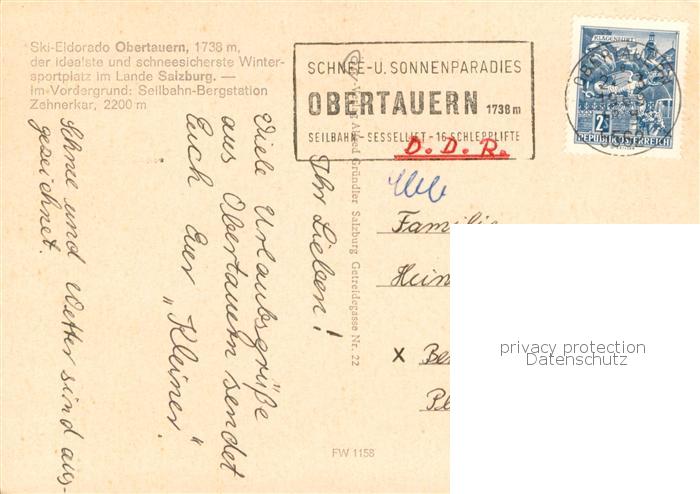 Ski-Eldorado Obertauern, 1738 m,
der idealste und schneesicherste Winter-
sportplatz im Lande Salzburg. —
Im Vordergrund: Seilbahn-Bergstation
Zehnerkar, 2200 m
SCHNEE-U. SONNENPARADIES
OBERTAUERN 1738 m
SEILBAHN-SESSELLIFT-16 SCHLEPPLIFTE
KLAGENFURT
REPUBLIK ÖSTERREICH
D. D. R.
Familie
Hein
X Be
Pl
Ihr Lieben!
Viele Urlaubsgrüße
aus Obertauern sendet
Euch Euer „Kleiner"
Schnee und Wetter sind aus-
gezeichnet.
Alfred Gründler Salzburg Getreidegasse Nr. 22
FW 1158
privacy protection
Datenschutz